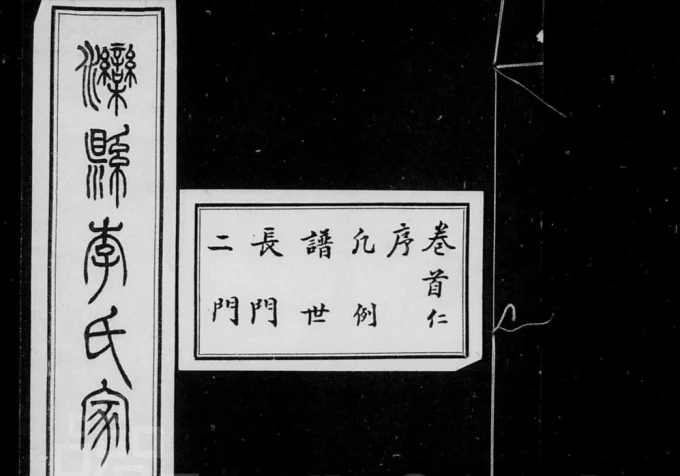 灤縣李氏家
卷首仁
序
凡例
譜世
長門
二門